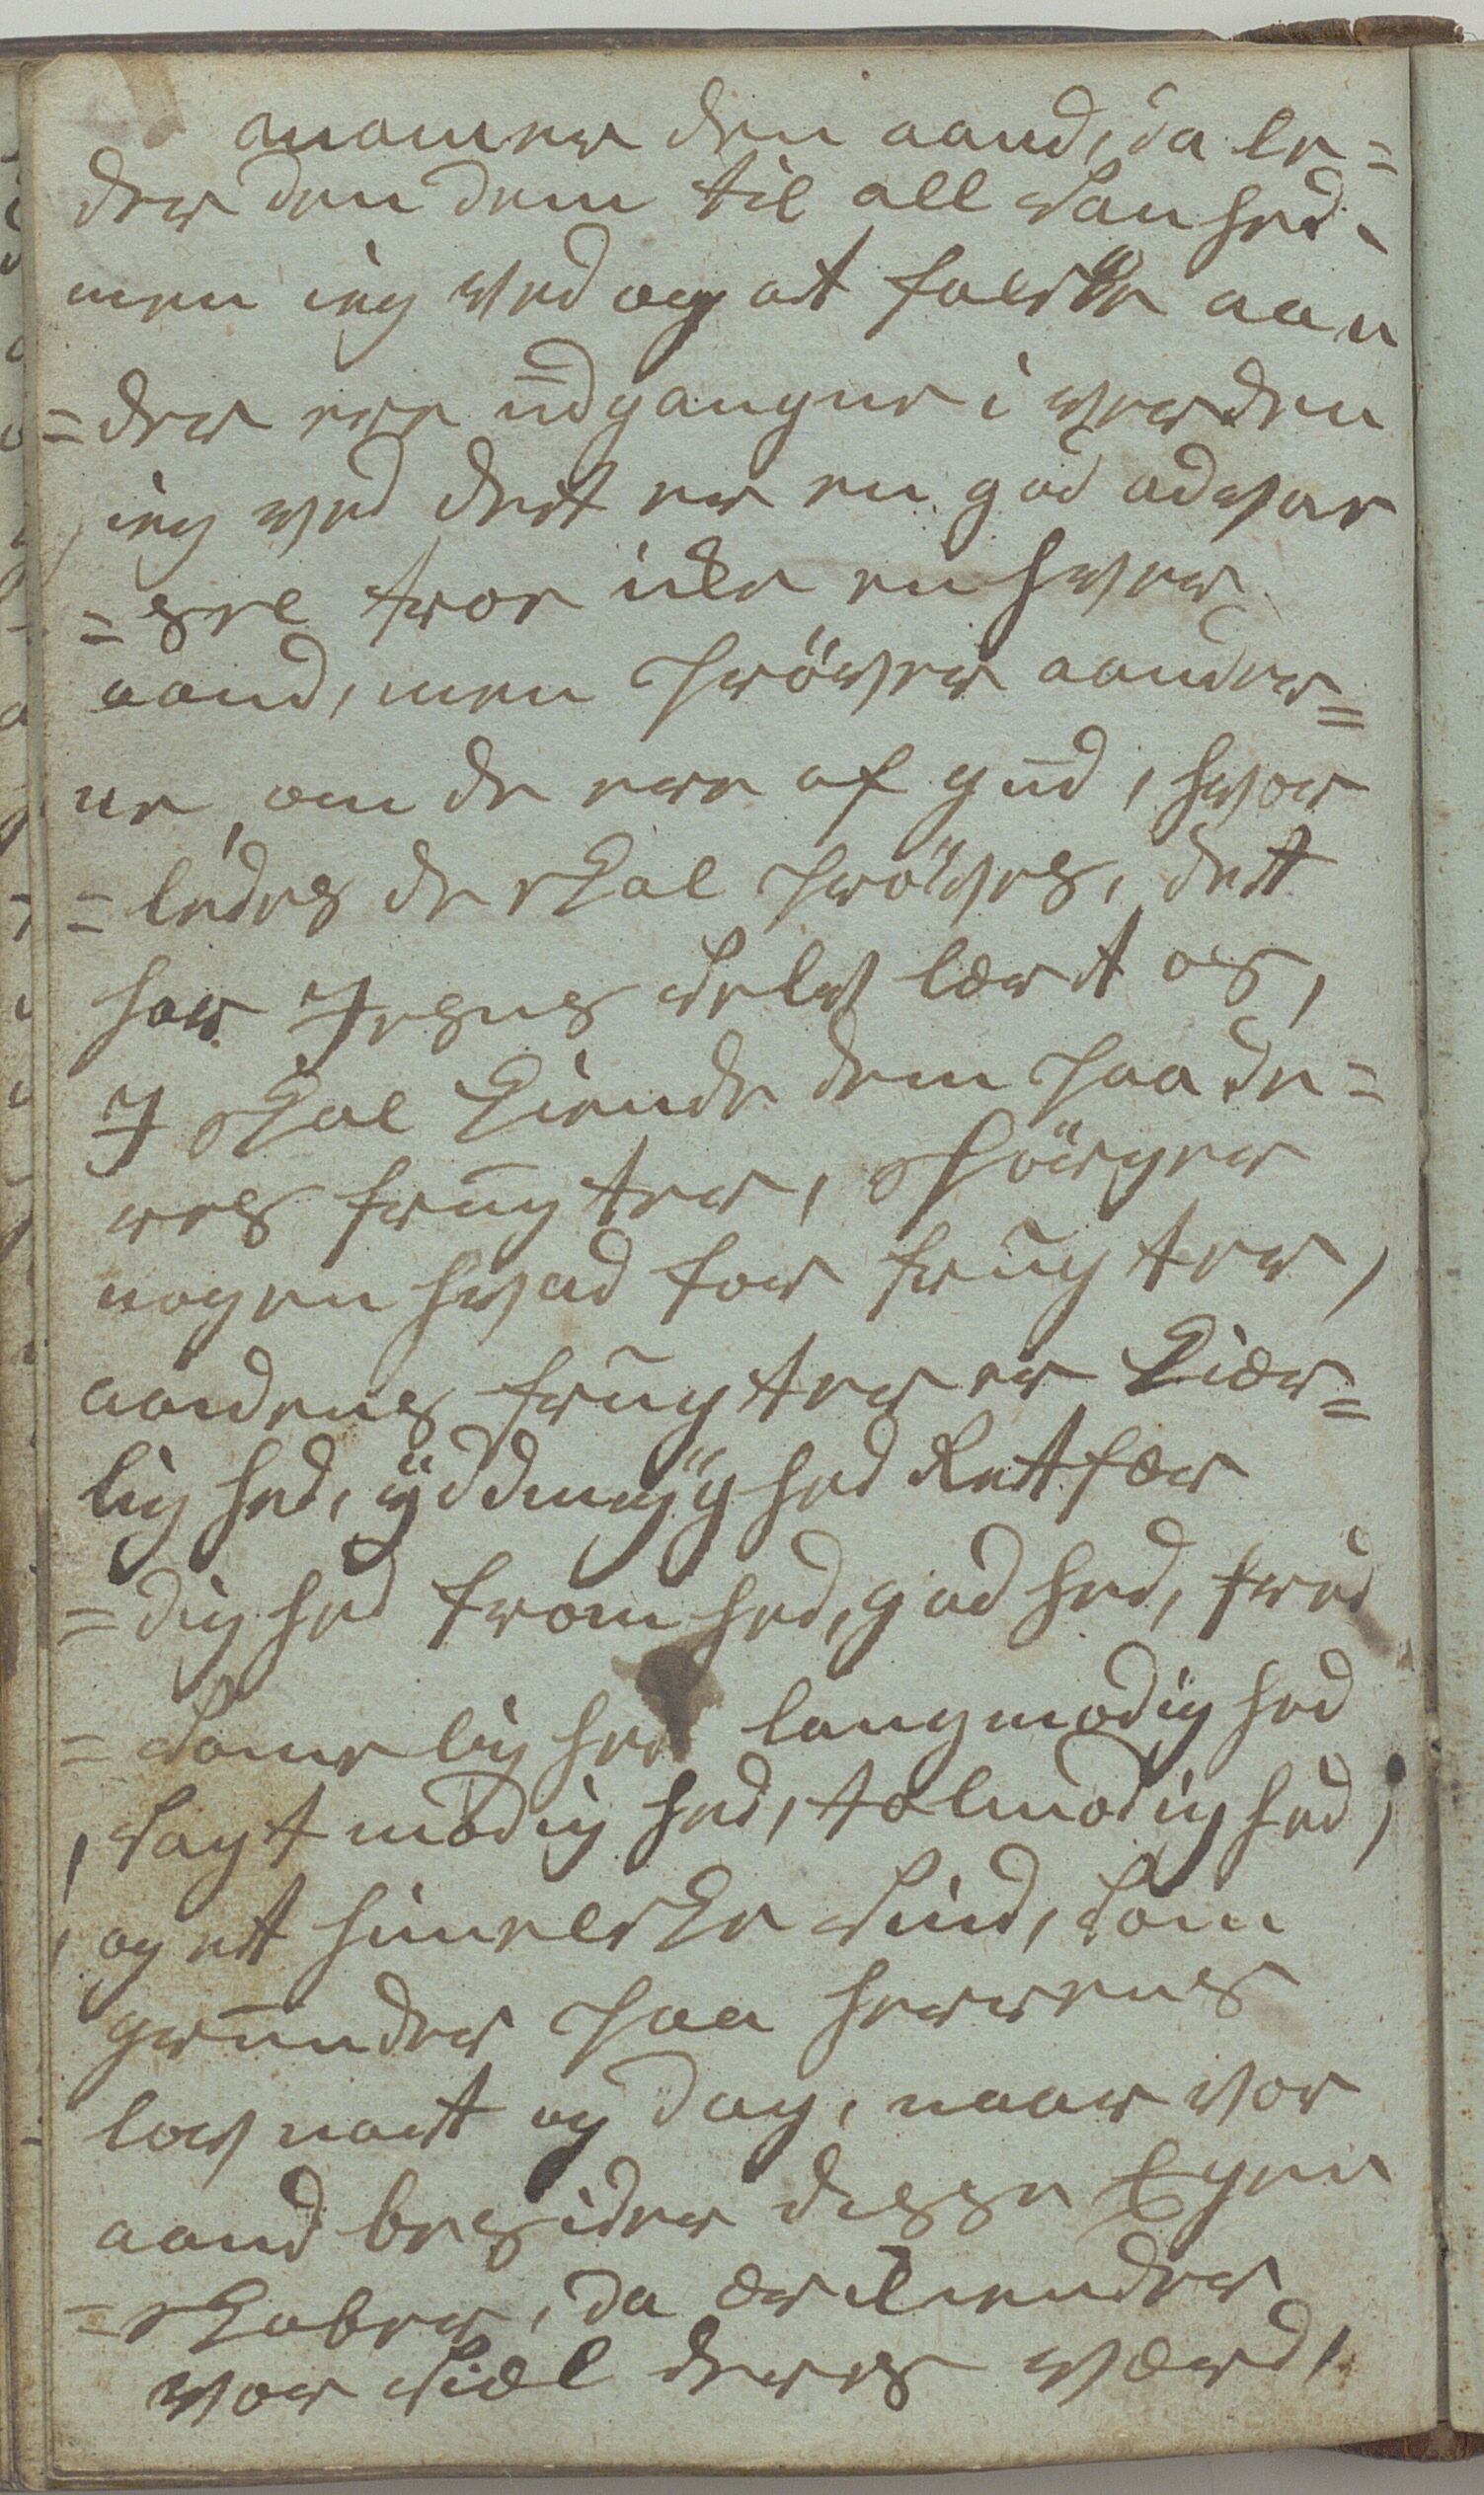 anamer den aand, da le=
der den dem til all Sanhed.
men ieg ved og at falske aan
=der ere udgangne i verden
ieg ved dett er en god advar
=sel troe icke en hver
aand, men pröver aander=
ne, om de ere af gud, hvor
=ledes de skal pröves, dett
har Jesus Selv lært os,
I skal kiende dem paa de=
res frugter, spörger
nogen hvad for frugter,
aandens frugter er kiær=
lighed, ÿddmÿghed Retfær
=dighed fromhed, godhed, fred
=Somelighed langmodighed
, Sagtmodighed, tolmodighed,
, og ett himelske Sind, Som
grunder paa herrens
lov natt og dag, naar vor
aand besider desse Egen
=skaber, da erkiender
vor Siæl deres værd,